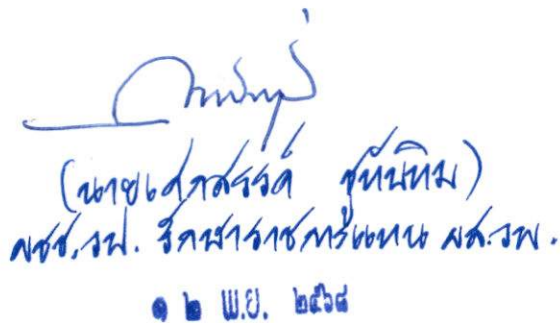 (นายเศกสรรค์ ชูทับทิม)
ผชช.วป. รักษาราชการแทน ผส.วพ.
๑ ๒ พ.ย. ๒๕๖๘